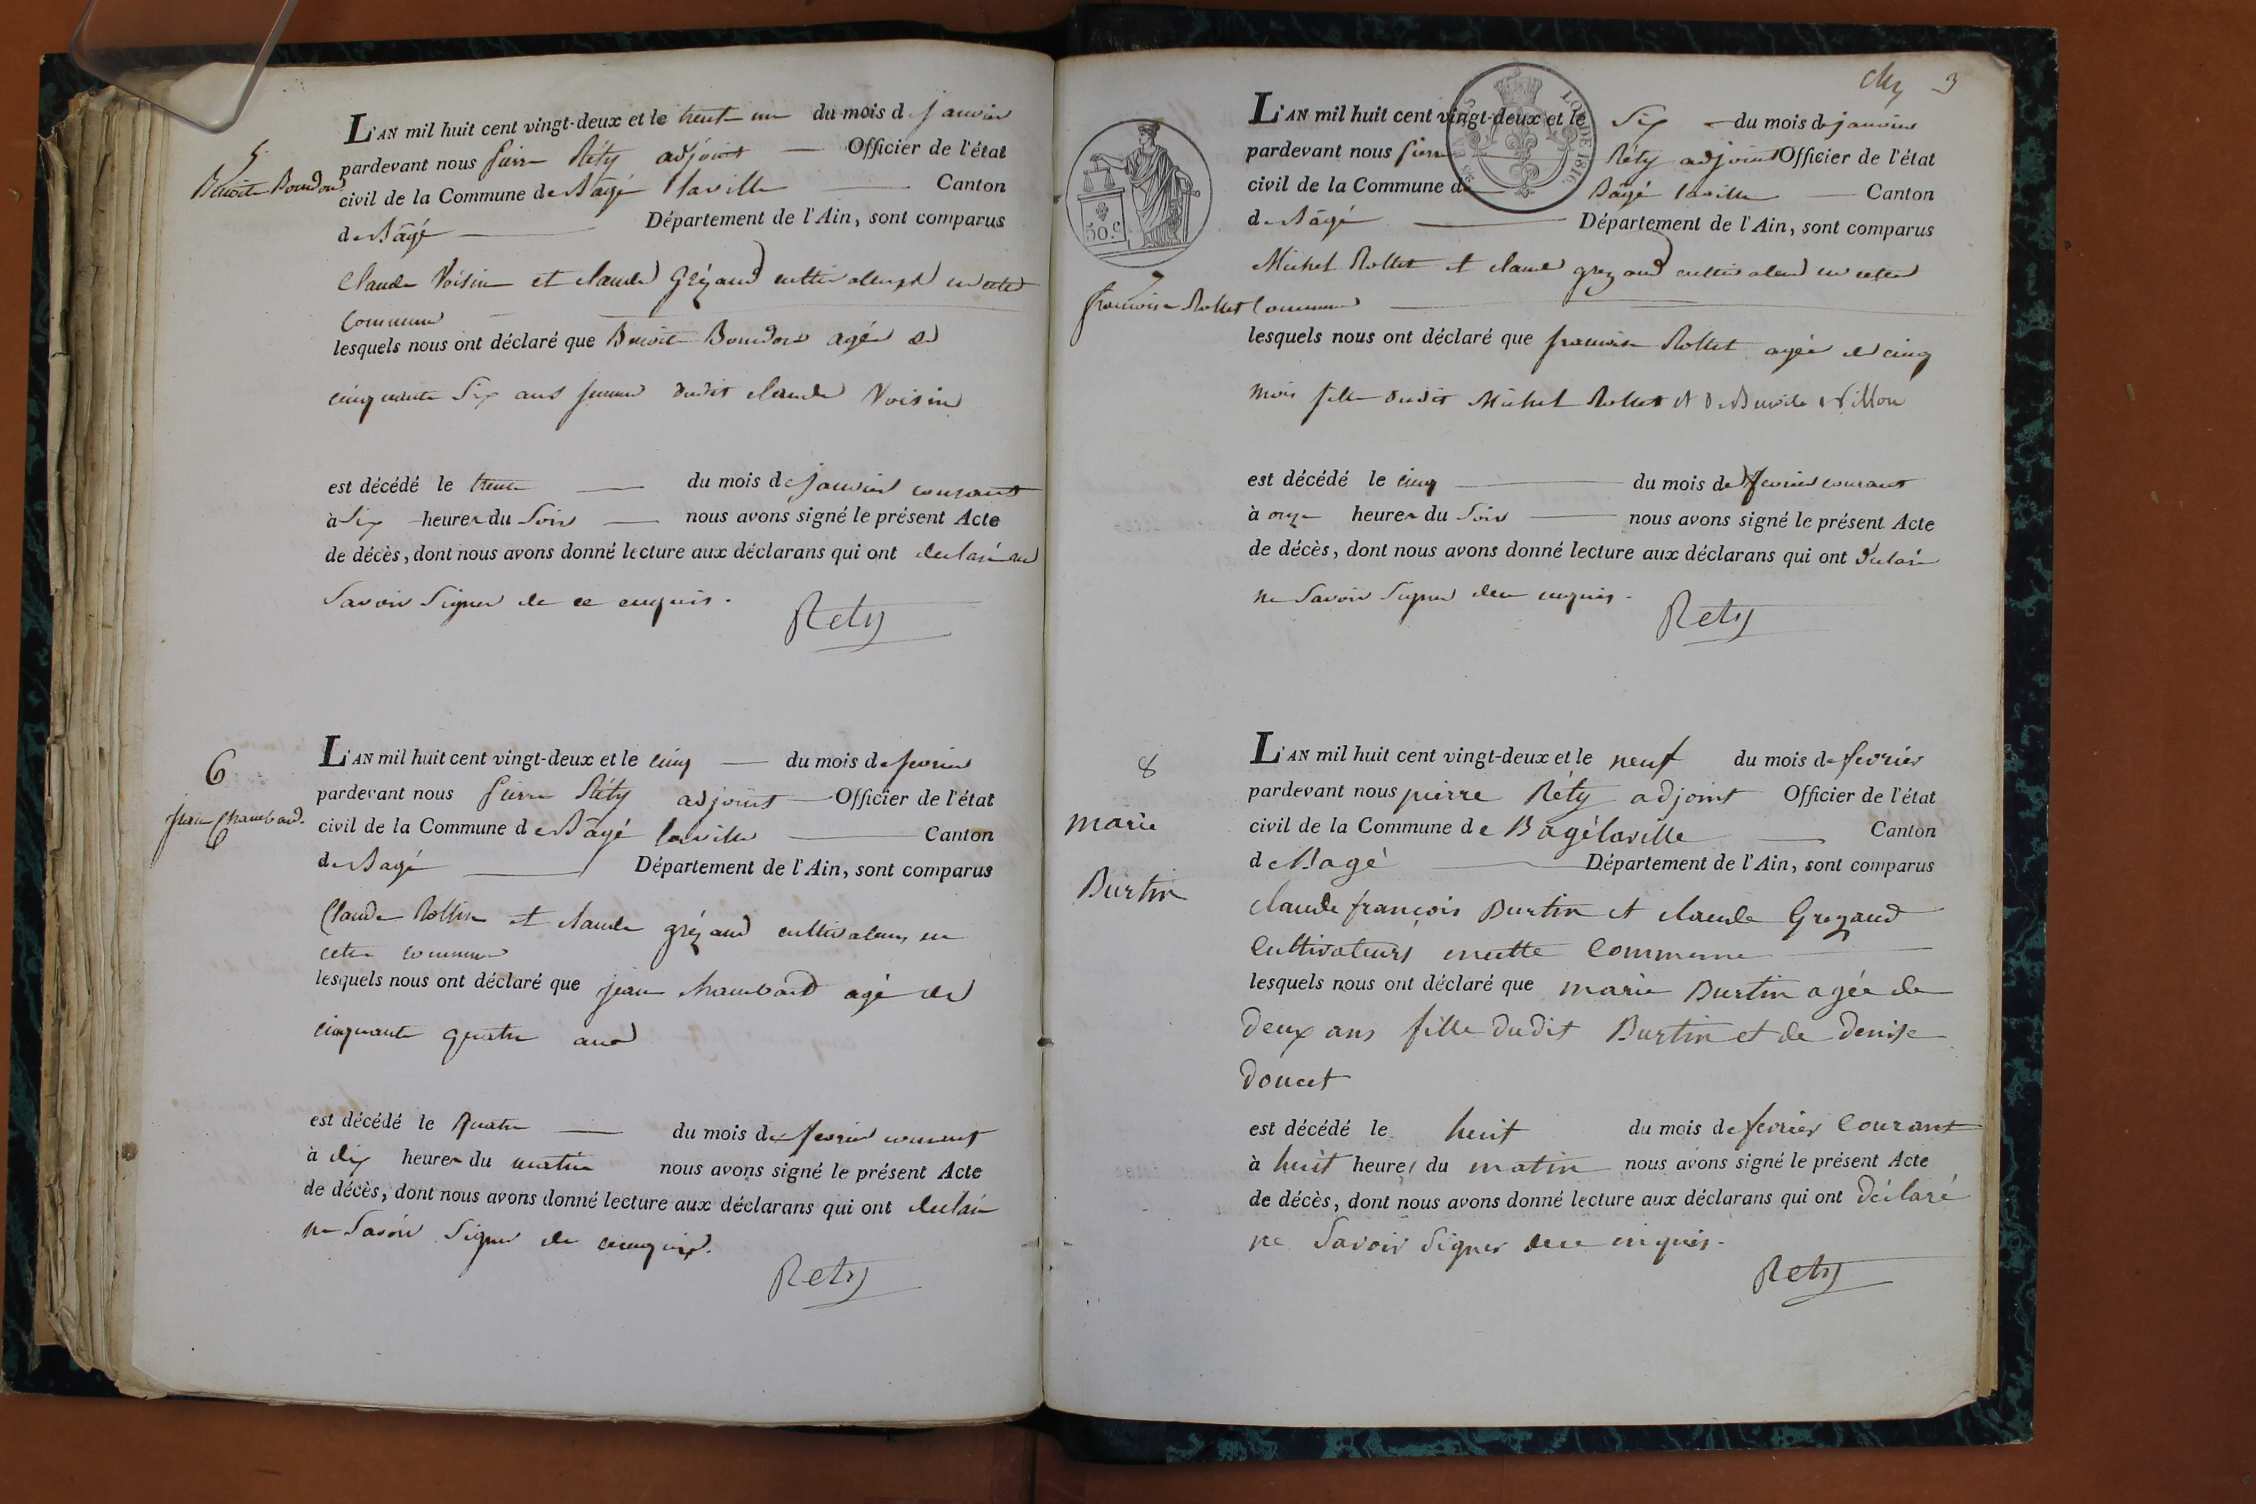 5
Benoite Bourdon
L'AN mil huit cent vingt-deux et le trent un du mois de janvier
pardevant nous pierre Réty adjoint Officier de l'état
civil de la Commune de Bâgé laville Canton
de Bâgé Département de l'Ain, sont comparus
Claude Voisin et claude Grézaud cultivateurs en cette
commune
lesquels nous ont déclaré que Benoite Bourdon agée de
cinquante Six ans femme dudit claude Voisin
est décédé le trente du mois de janvier courant
à Six heures du Soir nous avons signé le présent Acte
de décès, dont nous avons donné lecture aux déclarans qui ont declaré ne
Savoir Signer de ce enquis.
Rety
6
jean chambard.
L'AN mil huit cent vingt-deux et le cinq du mois de fevrier
pardevant nous pierre Réty adjoint Officier de l'état
civil de la Commune de Bâgé laville Canton
de Bagé Département de l'Ain, sont comparus
Claude Rollin et claude grézaud cultivateurs en
cette commune
lesquels nous ont déclaré que jean chambard agé de
cinquante quatre ans
est décédé le quatre du mois de fevrier courant
à dix heures du matin nous avons signé le présent Acte
de décès, dont nous avons donné lecture aux déclarans qui ont declaré
ne Savoir Signer de ce enquis.
Rety
3
LOI DE 1816.
50.C
7
francoise Rollet
L'AN mil huit cent vingt-deux et le Six du mois de janvier
pardevant nous pierre Réty adjoint Officier de l'état
civil de la Commune de Bâgé laville Canton
de Bâgé Département de l'Ain, sont comparus
Michel Rollet et claude grezaud cultivateurs en cette
Commune
lesquels nous ont déclaré que francoise Rollet agée de cinq
mois fille dudit Michel Rollet et de Benoite
est décédé le cinq du mois de fevrier courant
à onze heures du Soir nous avons signé le présent Acte
de décès, dont nous avons donné lecture aux déclarans qui ont déclaré
ne Savoir Signer de ce enquis.
Rety
8
marie
Burtin
L'AN mil huit cent vingt-deux et le neuf du mois de fevrier
pardevant nous pierre Réty adjoint Officier de l'état
civil de la Commune de Bâgé laville Canton
de Bagé Département de l'Ain, sont comparus
claude françois Burtin et claude Grezaud
Cultivateurs encette Commune
lesquels nous ont déclaré que marie Burtin agée de
deux ans fille dudit Burtin et de denise
doucet
est décédé le huit du mois de fevrier Courant
à huit heures du matin nous avons signé le présent Acte
de décès, dont nous avons donné lecture aux déclarans qui ont déclaré
ne Savoir Signer de ce enquis.
Rety